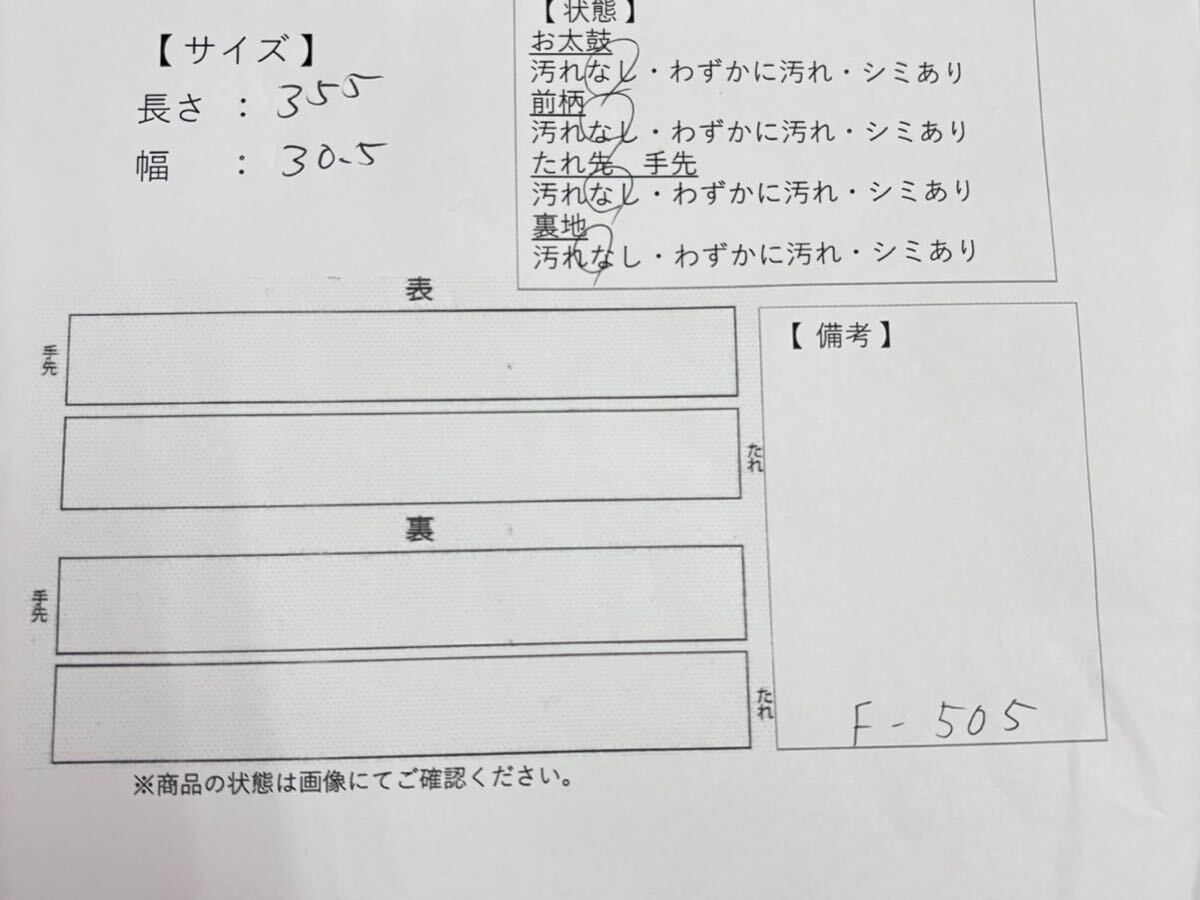 【 サイズ 】
長さ ： 355
幅 ： 30.5
【 状態 】
お太鼓
汚れなし・わずかに汚れ・シミあり
前柄
汚れなし・わずかに汚れ・シミあり
たれ先 手先
汚れなし・わずかに汚れ・シミあり
裏地
汚れなし・わずかに汚れ・シミあり
表
手先
たれ
裏
手先
たれ
【 備考 】
F - 505
※商品の状態は画像にてご確認ください。